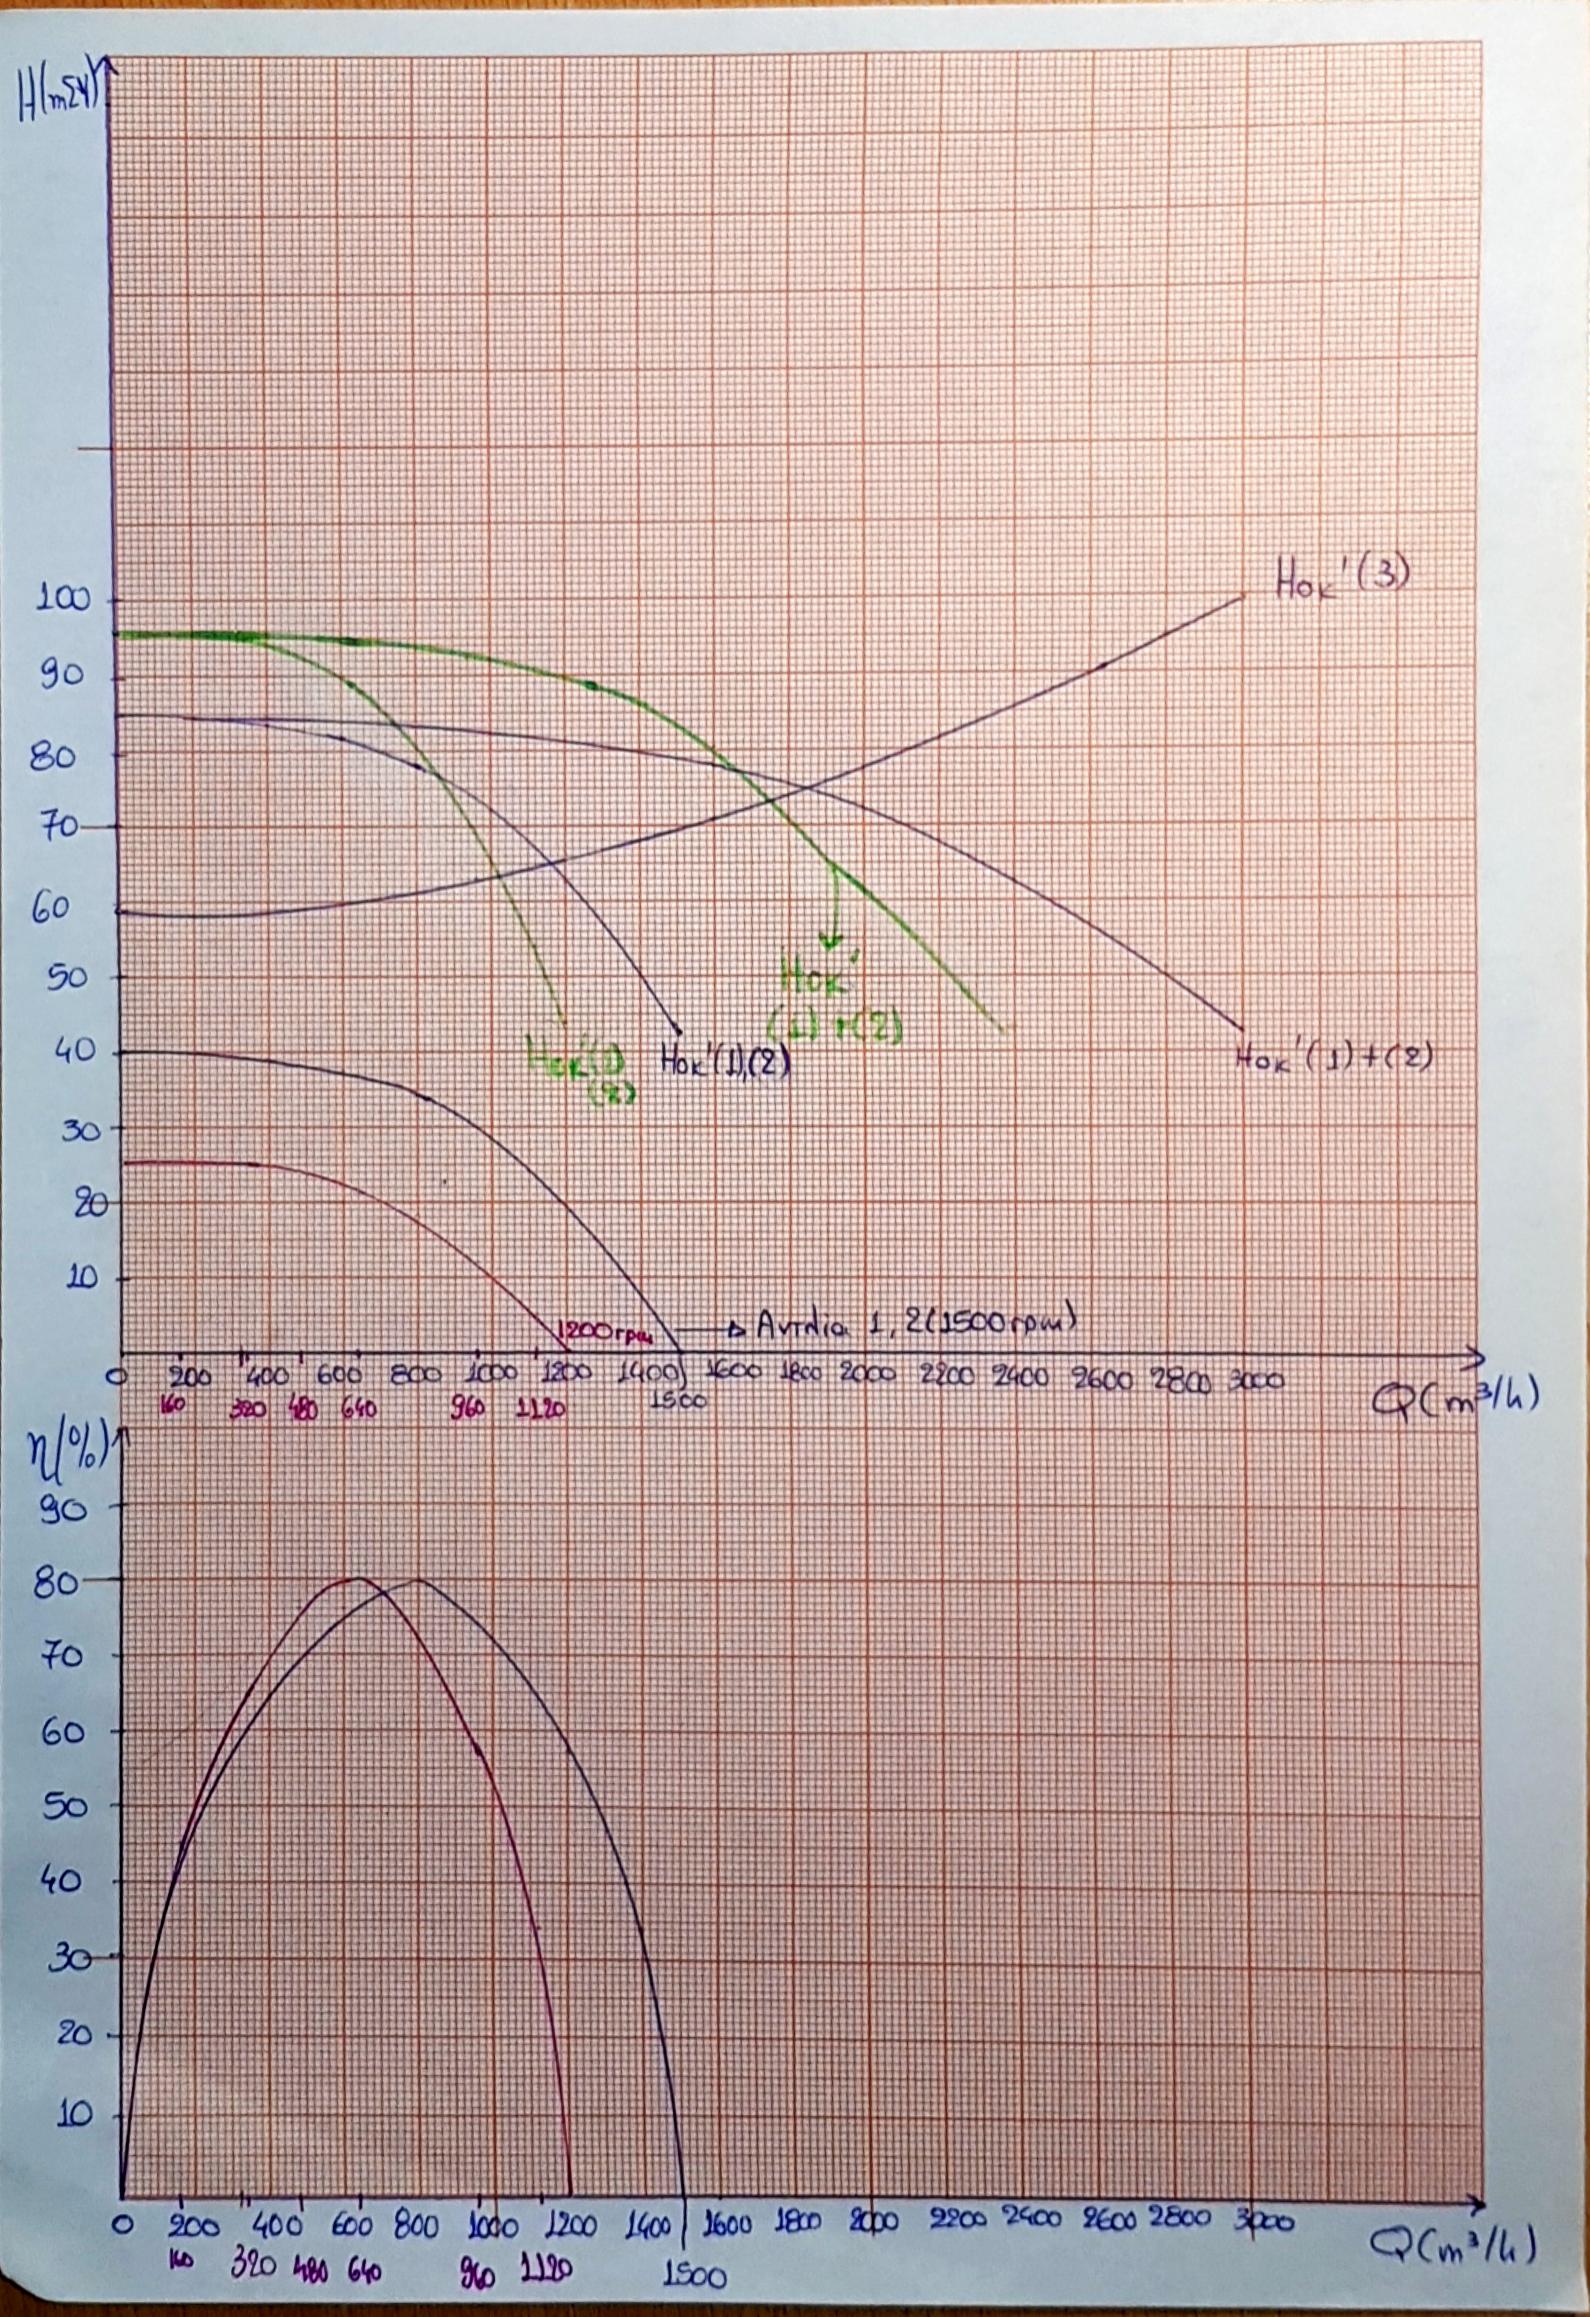 H(mΣΥ)
100
Hοκ'(3)
90
80
70
60
50
Hοκ'
(1)+(2)
40
Hοκ'(1)
(2)
Hοκ'(1),(2)
Hοκ'(1)+(2)
30
20
10
1200rpm
Αντλία 1, 2(1500rpm)
0 200 400 600 800 1000 1200 1400 1600 1800 2000 2200 2400 2600 2800 3000
160 320 480 640 960 1120 1500
Q(m³/h)
η(%)
90
80
70
60
50
40
30
20
10
0 200 400 600 800 1000 1200 1400 1600 1800 2000 2200 2400 2600 2800 3000
160 320 480 640 960 1120 1500
Q(m³/h)